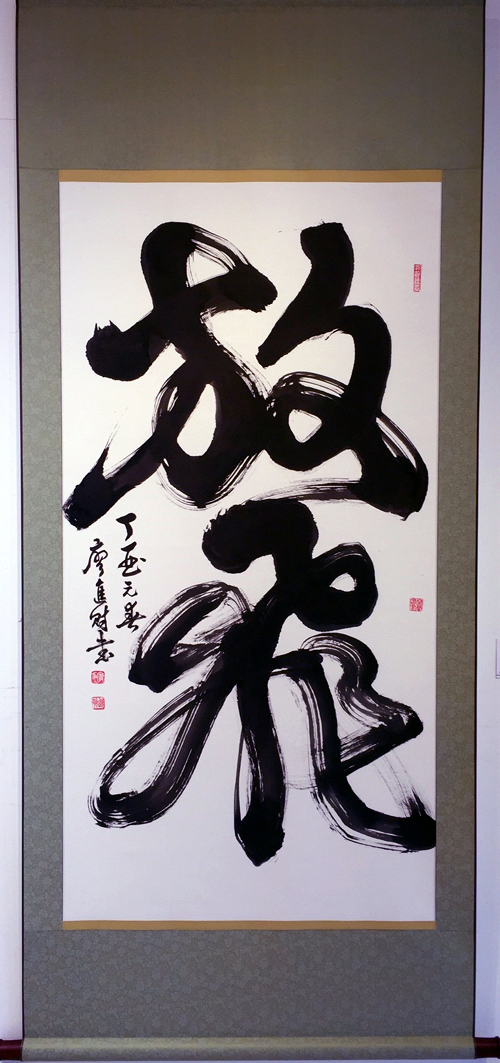 放飛
丁酉元春
廖進財書